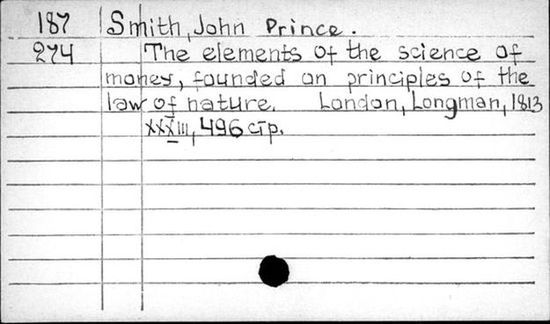 187 Smith, John Prince.
274 The elements of the science of
money, founded on principles of the
law of nature. London, Longman, 1813
XXXIII, 496 стр.